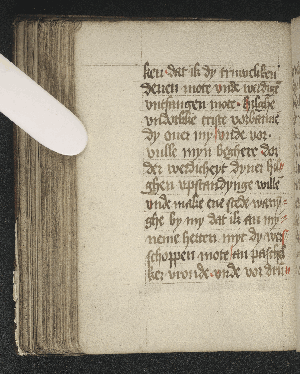 ken dat ik dy truweliken
denen mote vnde werdige
vntfangen mote hilghe
vrolike criste vorbarme
dy ouer my vnde vor
vulle myn beghere dor
der werdicheyt dyner hil
ghen vpstandynge wille
vnde make ene stede wany
ghe by my dat ik an my
neme herten myt dy wer
schoppen mote an paschel
ker vroude vnde vor dri